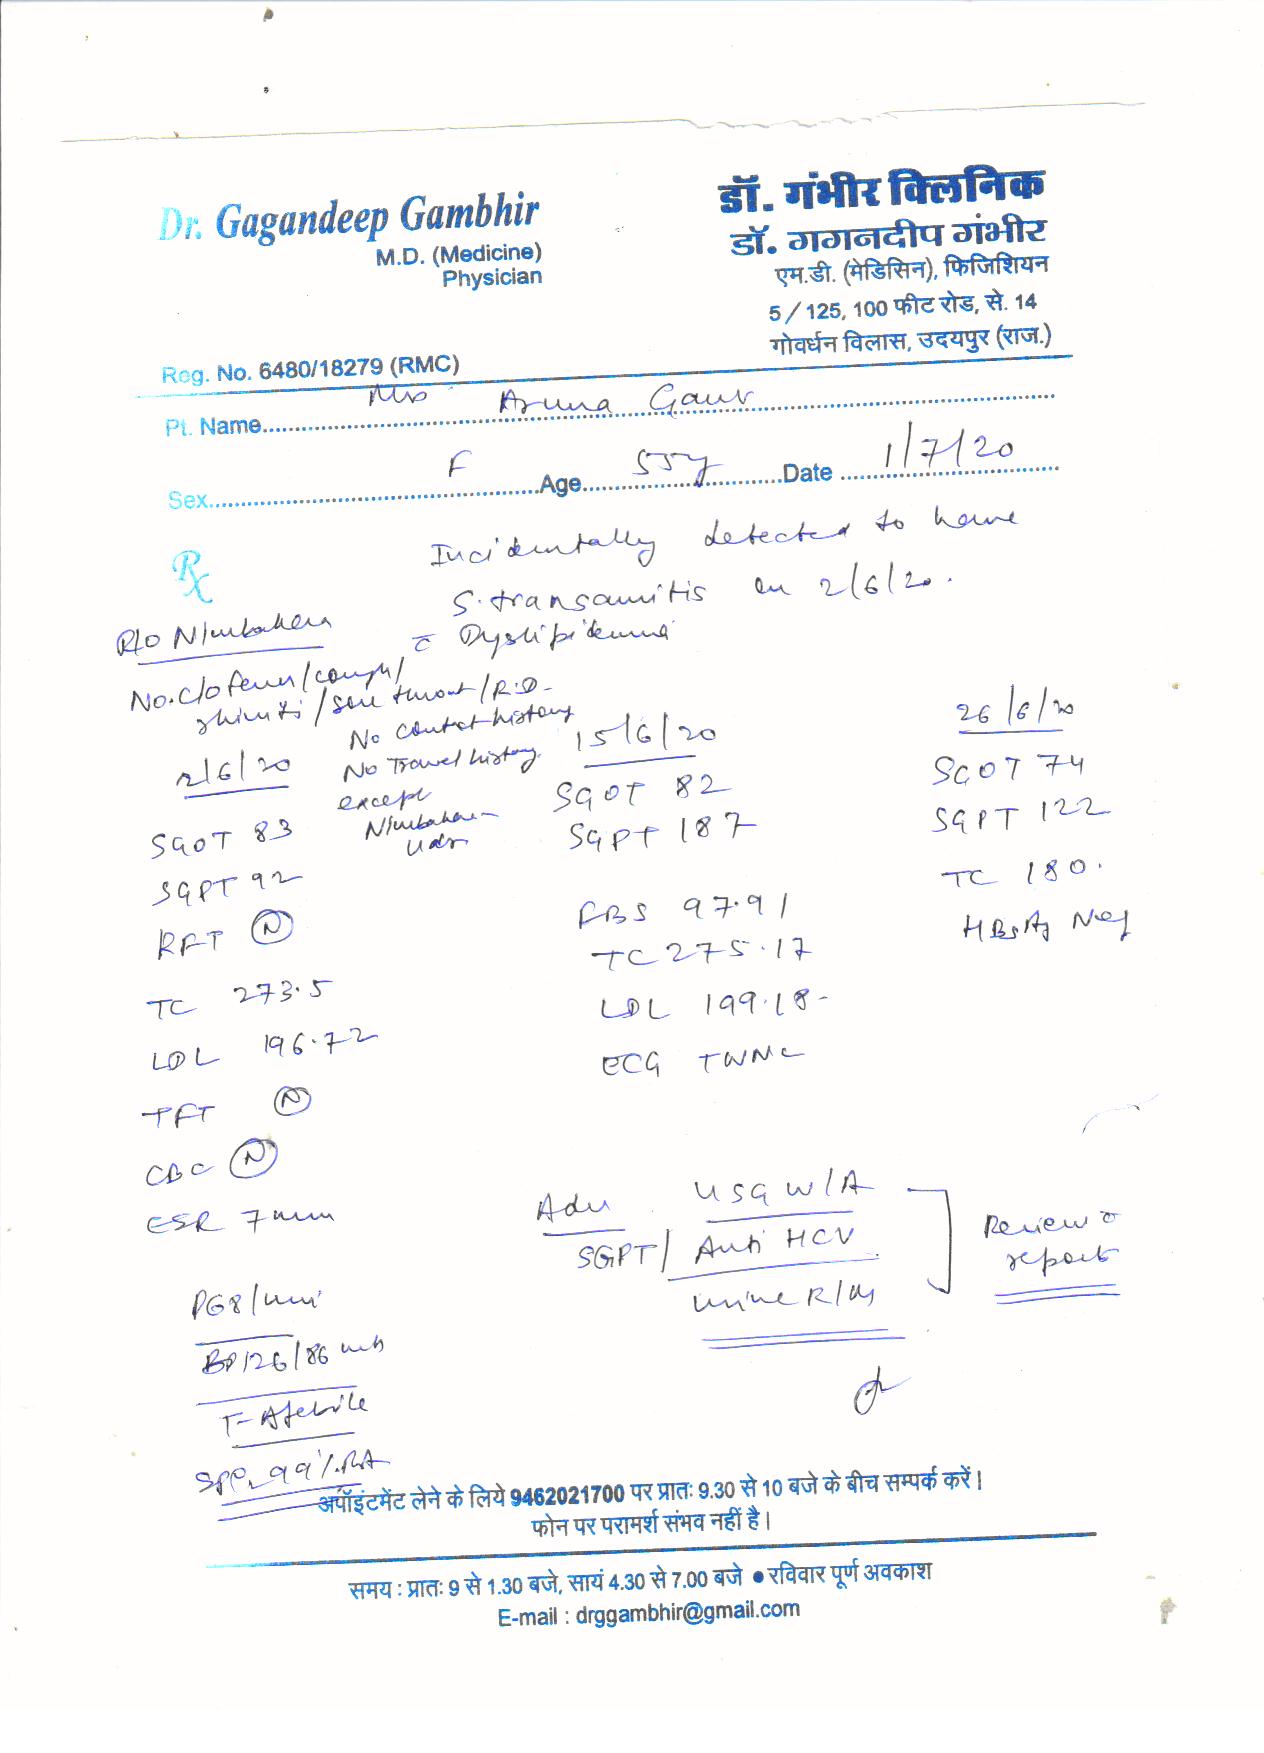 Dr. Gagandeep Gambhir
M.D. (Medicine)
Physician
Reg. No. 6480/18279 (RMC)
डॉ. गंभीर क्लिनिक
डॉ. गगनदीप गंभीर
एम.डी. (मेडिसिन), फिजिशियन
5 / 125, 100 फीट रोड, से. 14
गोवर्धन विलास, उदयपुर (राज.)
Pt. Name Mrs Aruna Gaur
Sex F Age 55y Date 1/7/20
Rx
Incidentally detected to have
S. transamitis on 2/6/20.
c̄ Dyslipidemia
R/o Nimbahera
No. c/o fever/cough/
rhinitis/sore throat/R.D-
No contact history
No Travel history
except
Nimbahera-
Udr
2/6/20
SGOT 83
SGPT 92
RFT (N)
TC 273.5
LDL 196.72
TFT (N)
CBC (N)
ESR 7mm
15/6/20
SGOT 82
SGPT 187
FBS 97.91
TC 275.17
LDL 199.18-
ECG TWNL
26/6/20
SGOT 74
SGPT 122
TC 180.
HBsAg Neg
Adv USG W/A
SGPT/ Anti HCV
Urine R/M
Review c̄
report
P68/min
BP126/86 mh
T- Afebrile
SPO2 99%.RA
अपॉइंटमेंट लेने के लिये 9462021700 पर प्रातः 9.30 से 10 बजे के बीच सम्पर्क करें।
फोन पर परामर्श संभव नहीं है।
समय : प्रातः 9 से 1.30 बजे, सायं 4.30 से 7.00 बजे ● रविवार पूर्ण अवकाश
E-mail : drggambhir@gmail.com